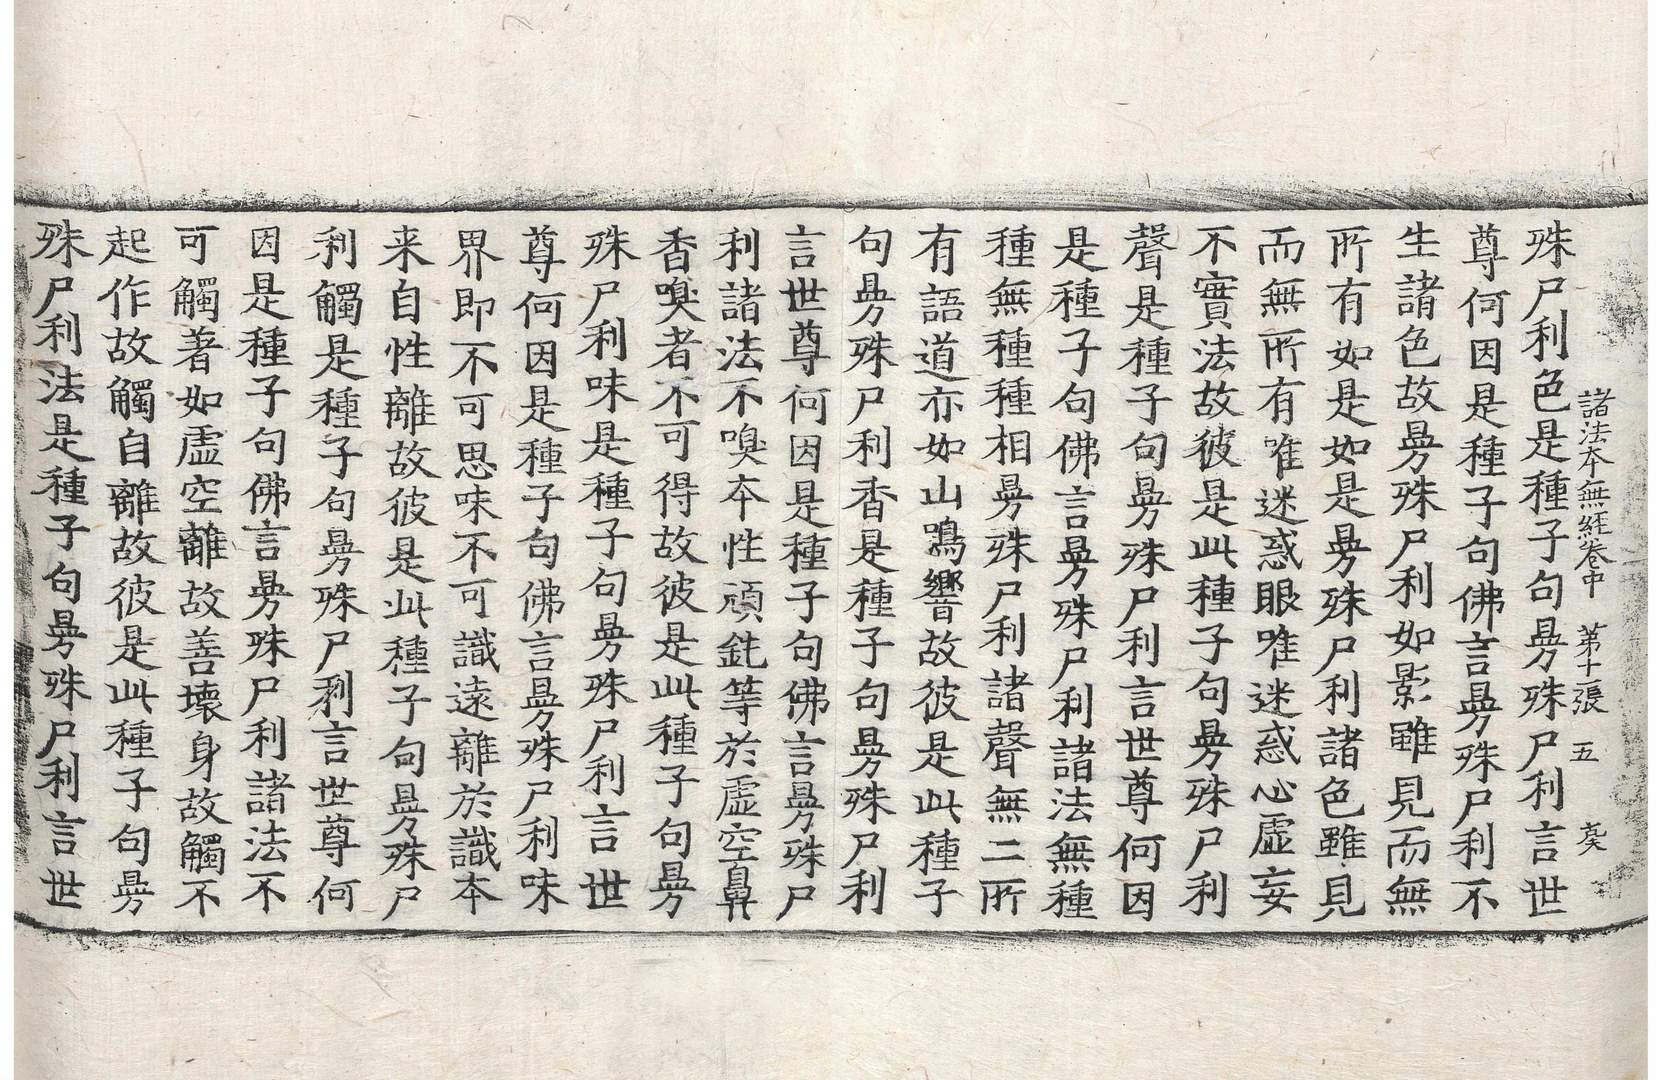 諸法本無經卷中 第十一張 五 癸
殊尸利色是種子句曼殊尸利言世
尊何因是種子句佛言曼殊尸利不
生諸色故曼殊尸利如影雖見而無
所有如是如是曼殊尸利諸色雖見
而無所有唯迷惑眼唯迷惑心虛妄
不實法故彼是此種子句曼殊尸利
聲是種子句曼殊尸利言世尊何因
是種子句佛言曼殊尸利諸法無種
種無種種相曼殊尸利諸聲無二所
有語道亦如山鳴響故彼是此種子
句曼殊尸利香是種子句曼殊尸利
言世尊何因是種子句佛言曼殊尸
利諸法不嗅本性頑鈍等於虛空鼻
香嗅者不可得故彼是此種子句曼
殊尸利味是種子句曼殊尸利言世
尊何因是種子句佛言曼殊尸利味
界即不可思味不可識遠離於識本
来自性離故彼是此種子句曼殊尸
利觸是種子句曼殊尸利言世尊何
因是種子句佛言曼殊尸利諸法不
可觸著如虛空離故善壞身故觸不
起作故觸自離故彼是此種子句曼
殊尸利法是種子句曼殊尸利言世